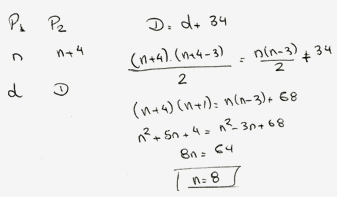 P₁ P₂ D = d + 34
n n+4 (n+4).(n+4-3)/2 = n(n-3)/2 + 34
d D
(n+4)(n+1) = n(n-3) + 68
n² + 5n + 4 = n² - 3n + 68
8n = 64
n = 8